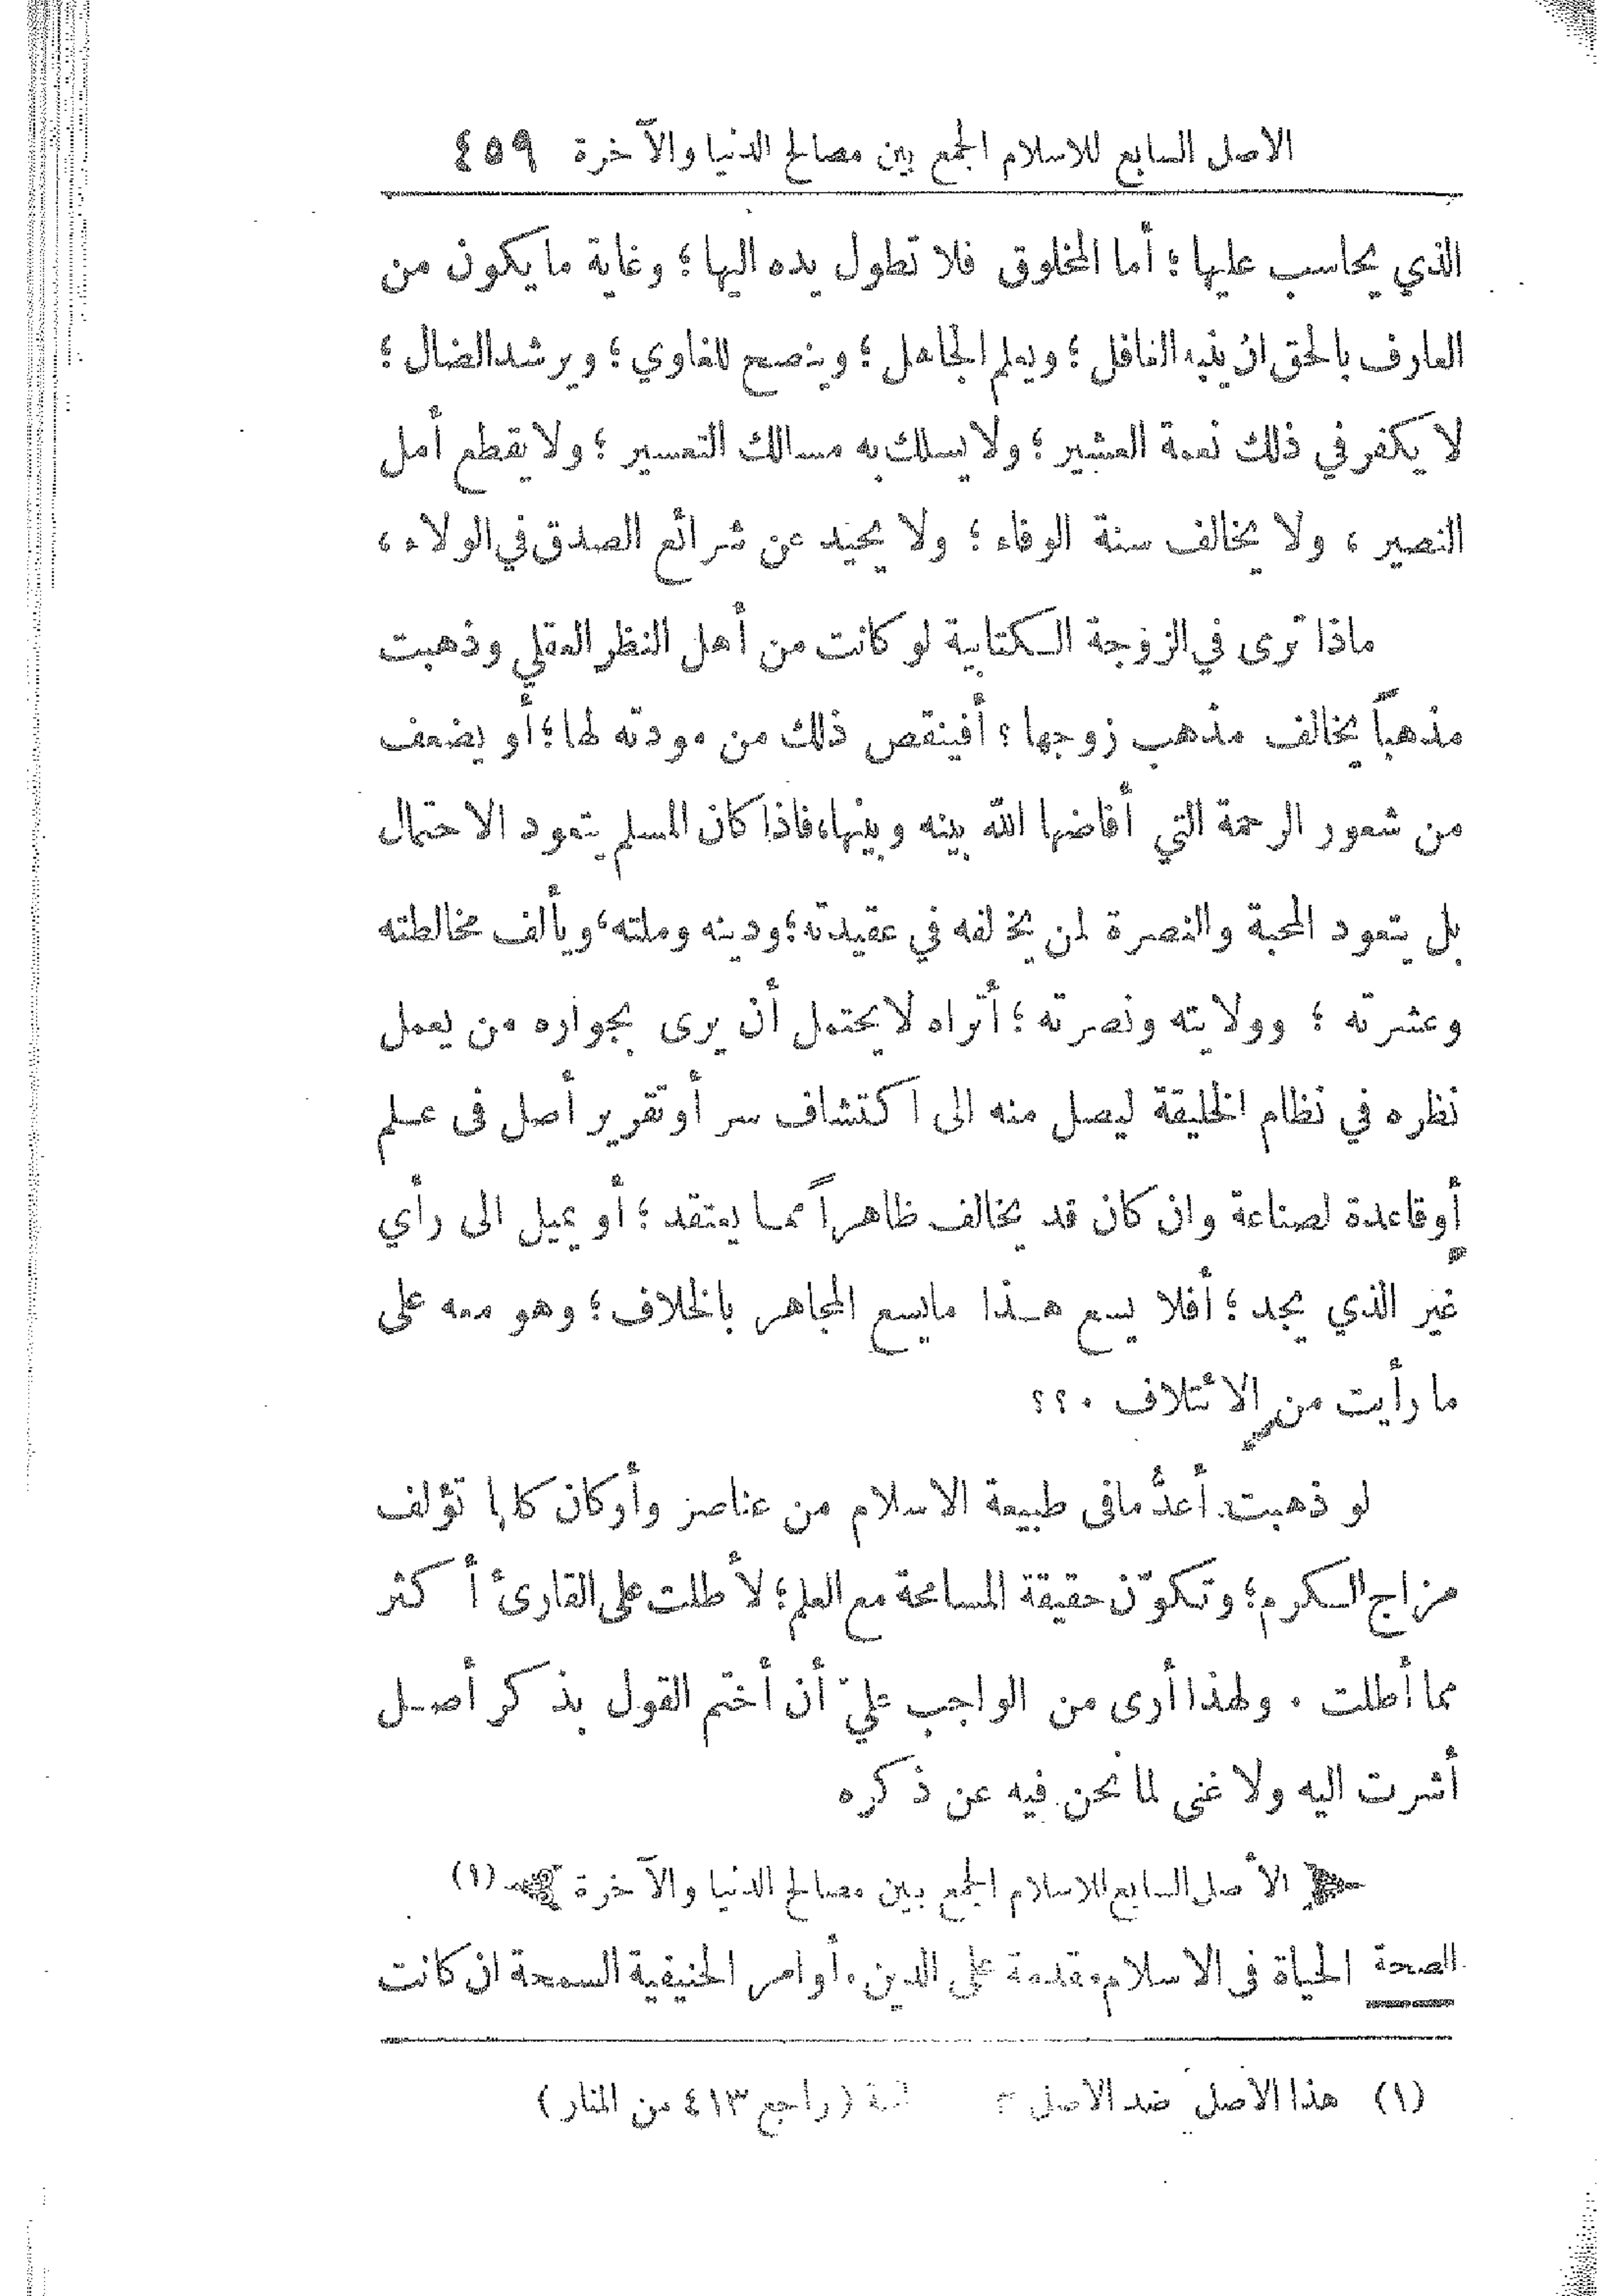 الاصل السابع للاسلام الجمع بين مصالح الدنيا والآخرة ٤٥٩
الذي يحاسب عليها؛ أما المخلوق فلا تطول يده اليها؛ وغاية ما يكون من
العارف بالحق ان ينبه الغافل؛ ويعلم الجاهل؛ وينصح للغاوي؛ ويرشد الضال؛
لا يكفر في ذلك نعمة العشير؛ ولا يسلك به مسالك التعسير؛ ولا يقطع أمل
النصير، ولا يخالف سنة الوفاء؛ ولا يحيد عن شرائع الصدق في الولاء،
ماذا ترى في الزوجة الكتابية لو كانت من أهل النظر العقلي وذهبت
مذهباً يخالف مذهب زوجها؟ أفينقص ذلك من مودته لها؛ أو يضعف
من شعور الرحمة التي أفاضها الله بينه وبينها، فاذا كان المسلم يتعود الاحتمال
بل يتعود المحبة والنصرة لمن يخالفه في عقيدته؛ ودينه وملته، ويألف مخالطته
وعشرته؛ وولايته ونصرته؛ أتراه لا يحتمل أن يرى بجواره من يعمل
نظره في نظام الخليقة ليصل منه الى اكتشاف سر أو تقرير أصل فى علم
أو قاعدة لصناعة وان كان قد يخالف ظاهراً مما يعتقد؛ أو يميل الى رأي
غير الذي يجد؛ أفلا يسع هذا ما يسع المجاهر بالخلاف؛ وهو معه على
ما رأيت من الائتلاف .؟؟
لو ذهبت أعدُّ ما فى طبيعة الاسلام من عناصر وأركان كلها تؤلف
مزاج الكرم؛ وتكوّن حقيقة المسامحة مع العلم؛ لأطلت على القارئ أكثر
مما أطلت . ولهذا أرى من الواجب عليّ أن أختم القول بذكر أصل
أشرت اليه ولا غنى لما نحن فيه عن ذكره
الأصل السابع للاسلام الجمع بين مصالح الدنيا والآخرة (١)
الصحة الحياة فى الاسلام مقدمة على الدين. أوامر الحنيفية السمحة ان كانت
(١) هذا الأصل ضد الاصل (راجع ٤١٣ من المنار)